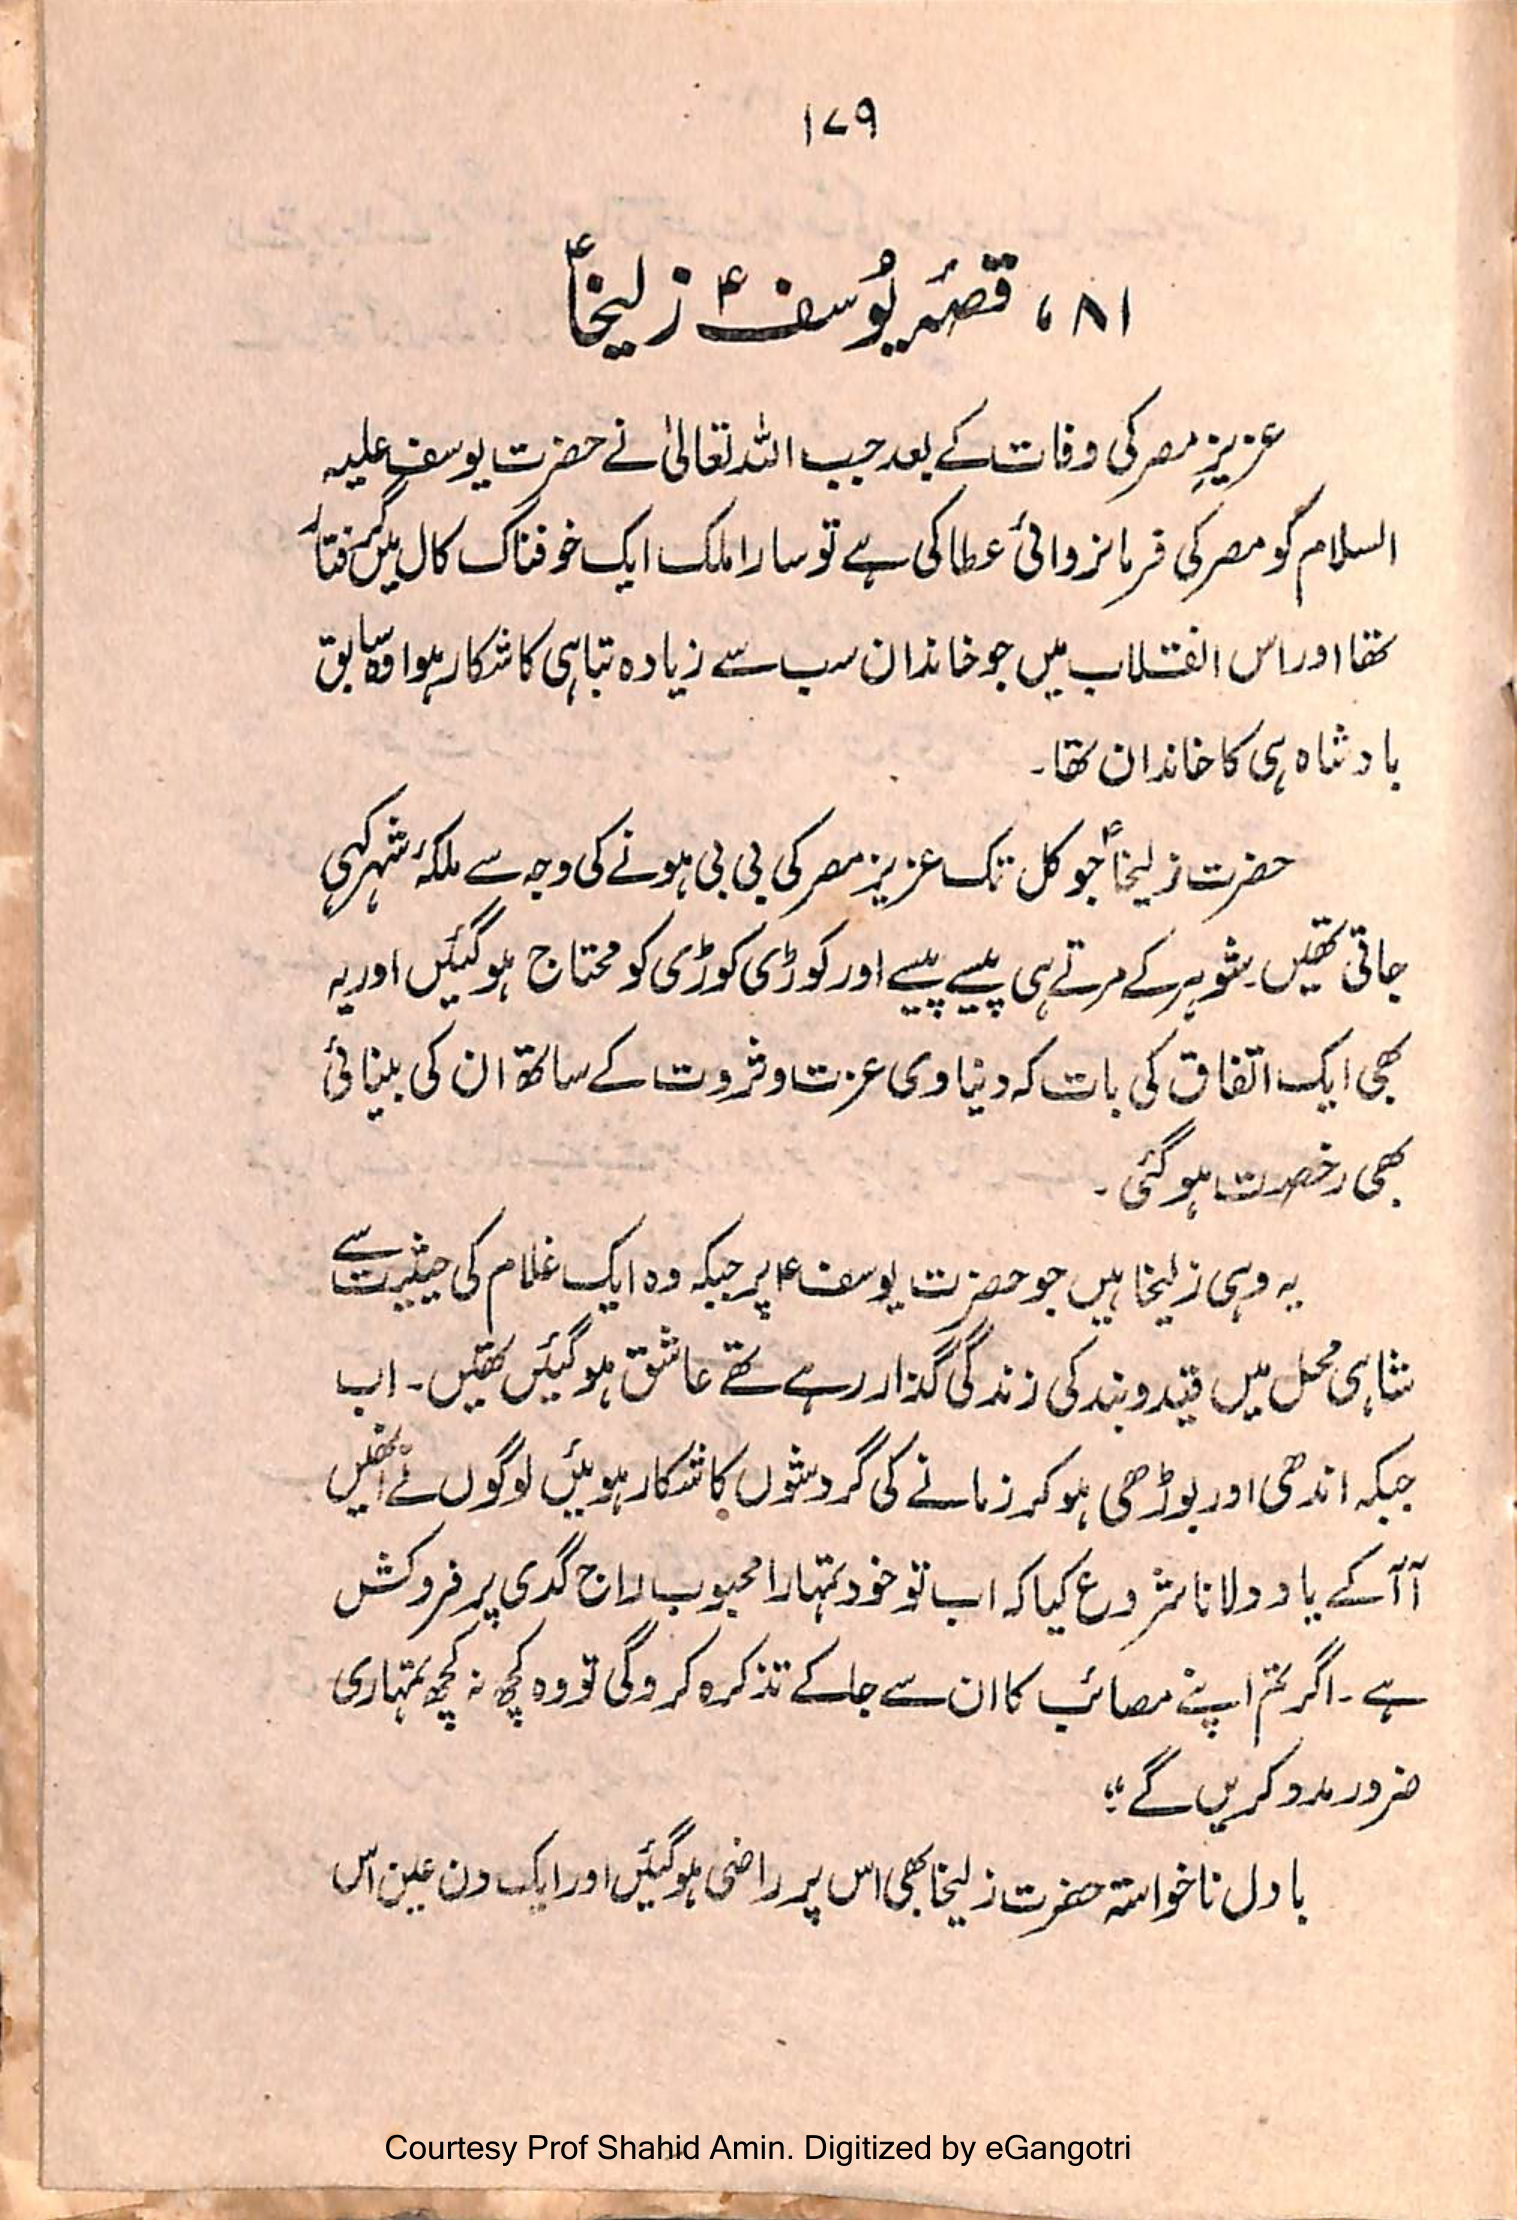 ۱۷۹
۸۱، قصۂ یُوسفؑ زلیخاؑ
عزیزِ مصر کی وفات کے بعد جب اللہ تعالیٰ نے حضرت یوسف علیہ
السلام کو مصر کی فرمانروائی عطا کی ہے تو سارا ملک ایک خوفناک کال میں گرفتار
تھا اور اس انقلاب میں جو خاندان سب سے زیادہ تباہی کا شکار ہوا وہ سابق
بادشاہ ہی کا خاندان تھا۔
حضرت زلیخاؑ جو کل تک عزیز مصر کی بی بی ہونے کی وجہ سے ملکۂ شہر کہی
جاتی تھیں۔ شوہر کے مرتے ہی پیسے پیسے اور کوڑی کوڑی کو محتاج ہو گئیں اور یہ
بھی ایک اتفاق کی بات کہ دنیاوی عزت و ثروت کے ساتھ ان کی بینائی
بھی رخصت ہو گئی۔
یہ وہی زلیخا ہیں جو حضرت یوسفؑ پر جبکہ وہ ایک غلام کی حیثیت سے
شاہی محل میں قید و بند کی زندگی گذار رہے تھے عاشق ہو گئیں تھیں۔ اب
جبکہ اندھی اور بوڑھی ہو کر زمانے کی گردشوں کا شکار ہوئیں لوگوں نے انھیں
آ آ کے یاد دلانا شروع کیا کہ اب تو خود تمہارا محبوب راج گدی پر فروکش
ہے۔ اگر تم اپنے مصائب کا ان سے جا کے تذکرہ کرو گی تو وہ کچھ نہ کچھ تمہاری
ضرور مدد کریں گے؛“
بادل ناخواستہ حضرت زلیخا بھی اس پر راضی ہو گئیں اور ایک دن عین اس
Courtesy Prof Shahid Amin. Digitized by eGangotri